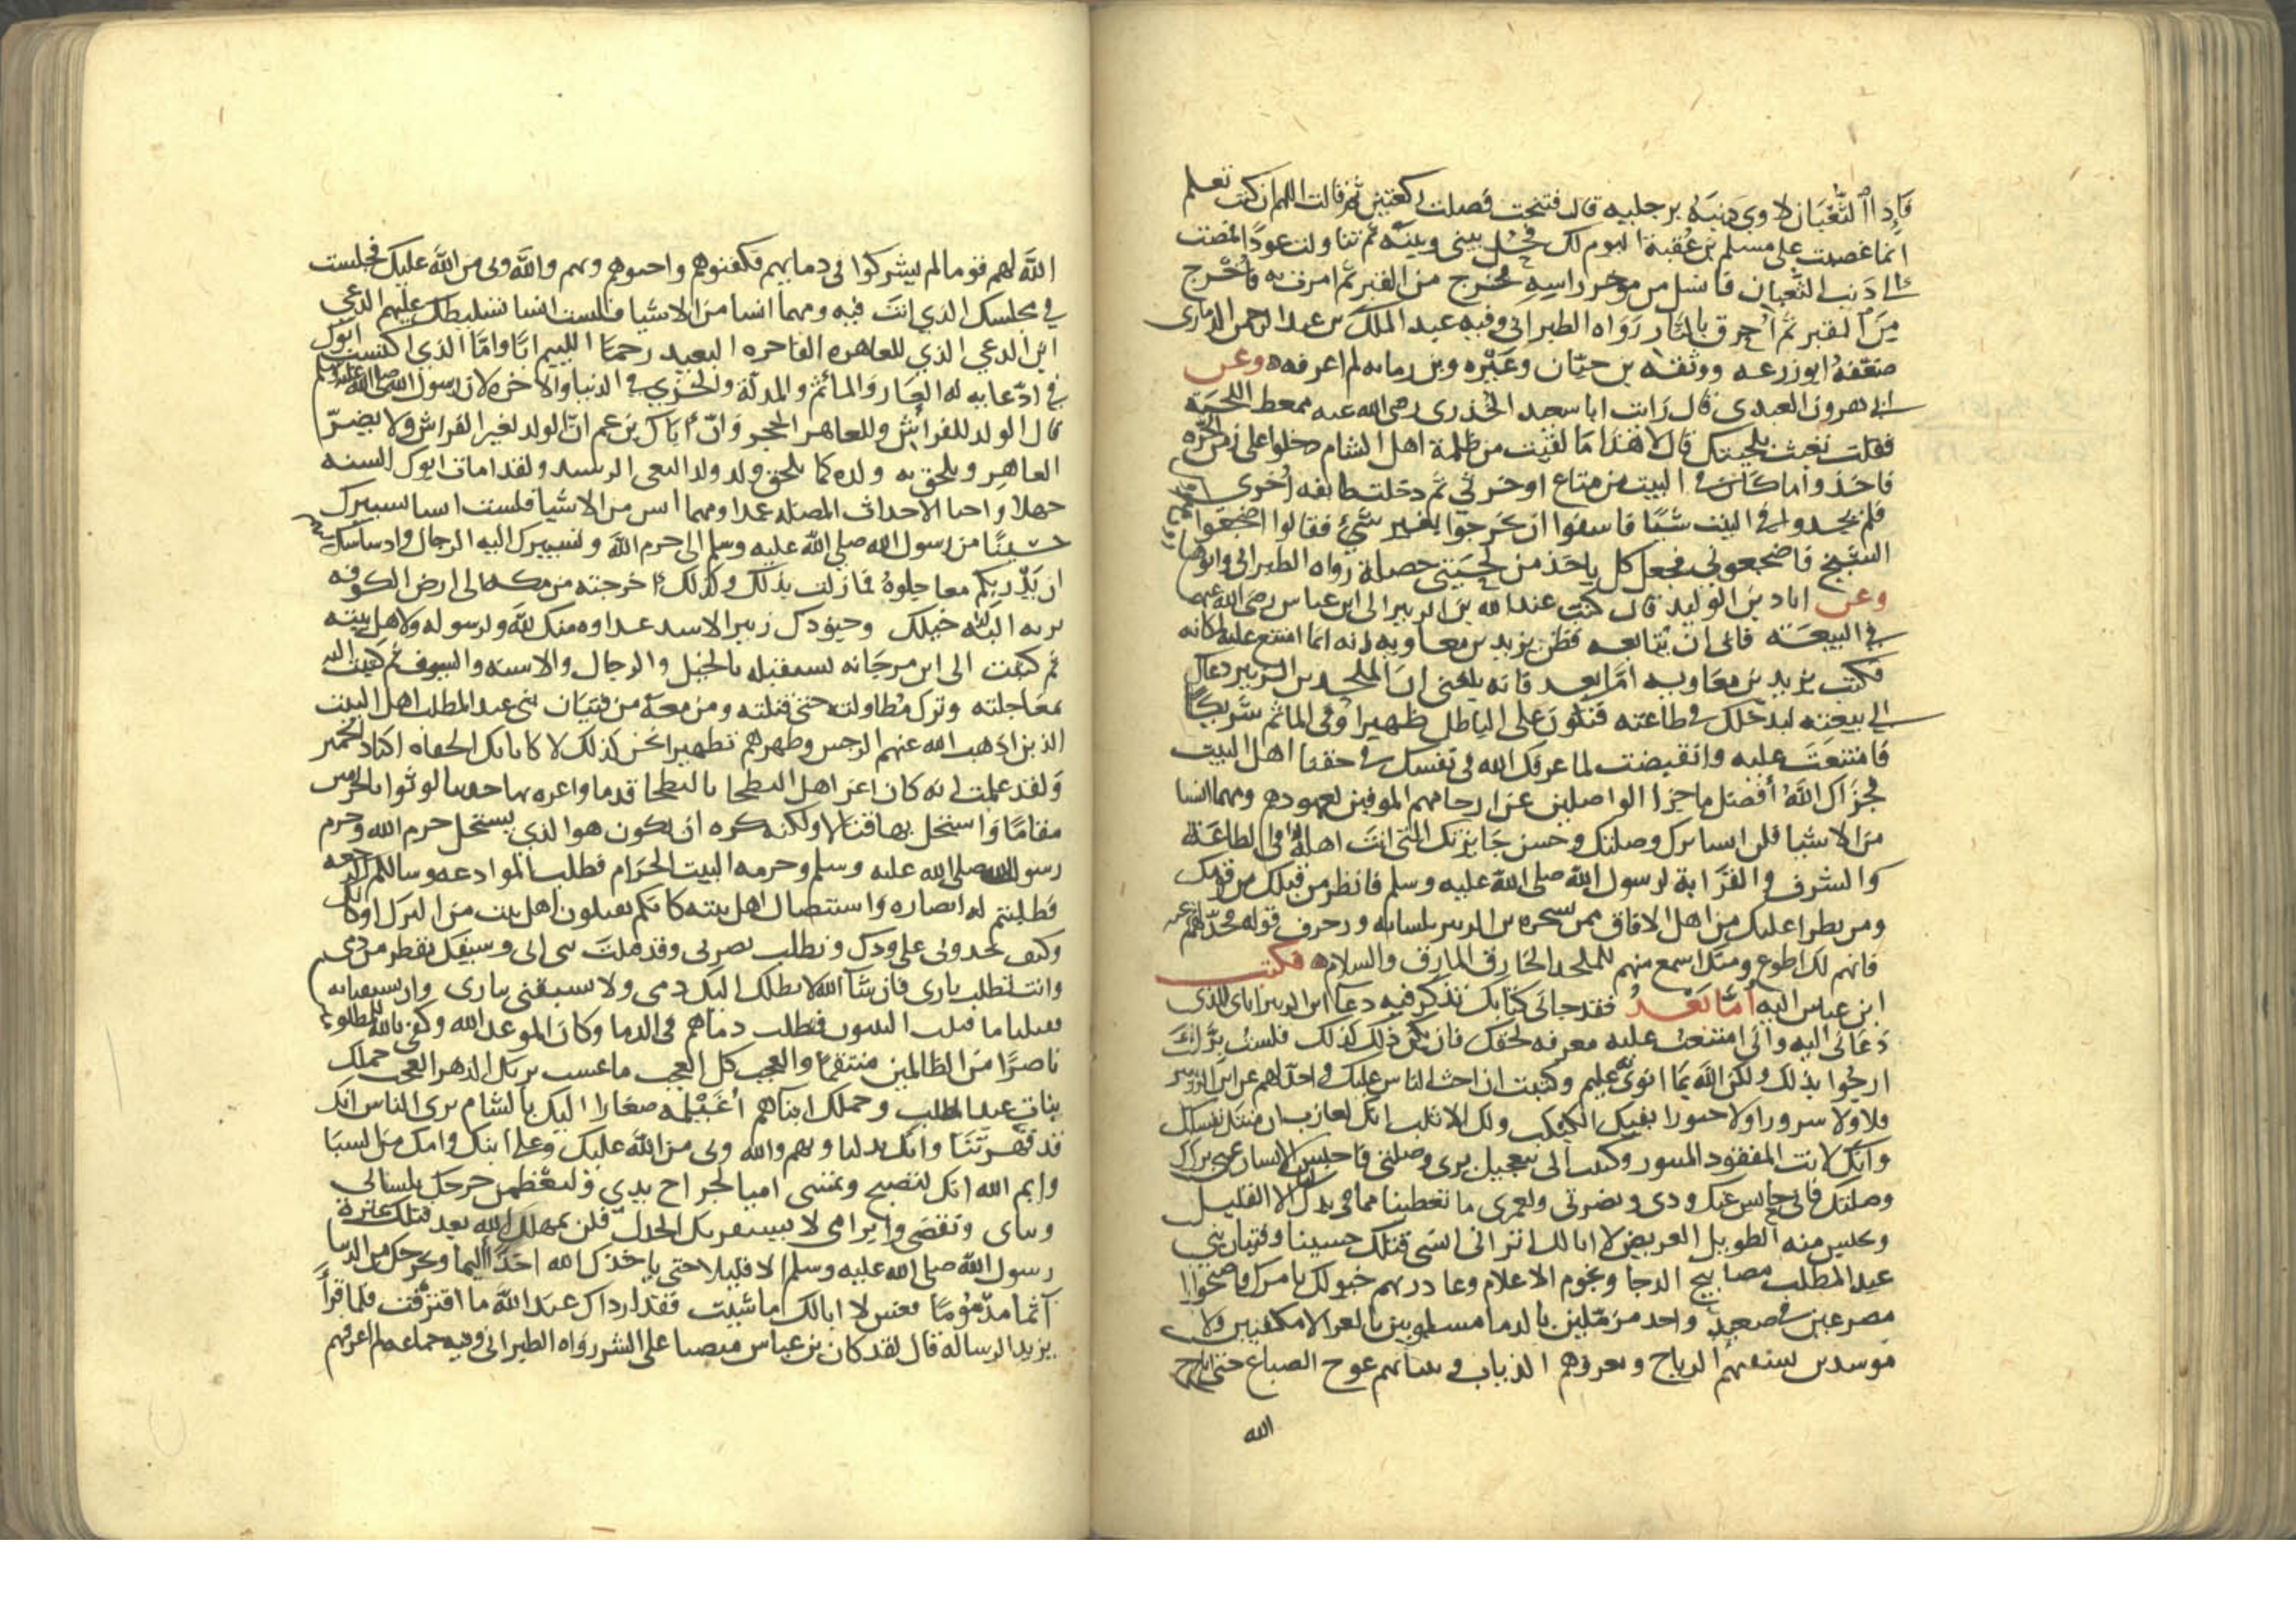 فاذا الثعبان لاوي ذنبه برجليه قال فتنحت فصلت ركعتين ثم قالت اللهم ان كنت تعلم
انما غضبت على مسلم بن عقبة اليوم لك فخل بيني وبينه ثم تناولت عودا فمضت
الى ذنب الثعبان فانسل من موخر راسه فخرج من القبر ثم امرت به فاخرج
من القبر ثم احرق بالنار رواه الطبراني وفيه عبد الملك بن عبد الرحمن الذماري
ضعفه ابو زرعه ووثقه بن حبان وغيره وبن رمانه لم اعرفه وعن
ابي هرون العبدي قال رايت ابا سعيد الخدري رضي الله عنه ممعط اللحية
فقلت تعبث بلحيتك قال لا هذا ما لقيت من ظلمة اهل الشام دخلوا على زمن الحره
فاخذوا ما كان في البيت من متاع او خرثي ثم دخلت طايفه اخرى
فلم يجدوا في البيت شيئا فاسفوا ان يخرجوا بغير شيء فقالوا اضجعوا
الشيخ فاضجعوني فجعل كل ياخذ من لحيتي خصلة رواه الطبراني وابو هارون
وعن اباد بن الوليد قال كتب عبد الله بن الزبير الى ابن عباس رضي الله عنهما
في البيعة فابى ان يبايعه فظن يزيد بن معاويه انه انما امتنع عليه لمكانه
فكتب يزيد بن معاويه اما بعد فانه بلغني ان الملحد بن الزبير دعاك
الى بيعته ليدخلك في طاعته فتكون على الباطل ظهيرا وفي الماثم شريكا
فامتنعت عليه وانقبضت لما عرفك الله في نفسك في حقنا اهل البيت
فجزاك الله افضل ما جزا الواصلين عن ارحامهم الموفين بعهودهم ومهما انسا
من الاشيا فلن انسا برك وصلتك وحسن جايزتك التي انت اهلها في الطاعة
والشرف والقرابة لرسول الله صلى الله عليه وسلم فانظر من قبلك من قومك
ومن يطرا عليك من اهل الافاق ممن سحره بن الزبير بلسانه وزخرف قوله فخذلهم عنه
فانهم لك اطوع ومنك اسمع منهم للملحد الخارق المارق والسلام فكتب
ابن عباس اليه اما بعد فقد جاني كتابك تذكر فيه دعا ابن الزبير اياي للذي
دعاني اليه واني امتنعت عليه معرفه لحقك فان يكن ذلك كذلك فلست برك
ارجوا بذلك ولكن الله بما انوي به عليم وكتبت ان احث الناس عليك واخذلهم عن ابن الزبير
فلا ولا سرورا ولا حبورا بفيك الكثكث ولك الاثلب انك لعازب ان منتك نفسك
وانك لانت المفقود المثبور وكتبت الى بتعجيل بري وصلتي فاحبس ايها الانسان عني برك
وصلتك فاني حابس عنك ودي ونصرتي ولعمري ما تعطينا مما في يدك لنا الا القليل
وتحبس منه الطويل العريض لا ابا لك اتراني انسى قتلك حسينا وفتيان بني
عبد المطلب مصابيح الدجا ونجوم الاعلام وغادرتهم خيولك بامرك فاصبحوا
مصرعين في صعيد واحد مزملين بالدما مسلوبين بالعرا لا مكفنين ولا
موسدين تسفيهم الرياح وتعروهم الذياب وتنتابهم عوج الضباع حتى اتاح
الله
الله لهم قوما لم يشركوا في دمايهم فكفنوهم واجنوهم وبهم والله وبي من الله عليك فجلست
في مجلسك الذي انت فيه ومهما انسا من الاشيا فلست انسا تسليطك عليهم الدعي
ابن الدعي الذي للعاهره الفاجره البعيد رحما اللئيم ابا واما الذي اكتسب ابوك
في ادعايه له العار والماثم والمذلة والخزي في الدنيا والاخره لان رسول الله صلى الله عليه وسلم
قال الولد للفراش وللعاهر الحجر وان اباك زعم ان الولد لغير الفراش ولا يضر
العاهر ويلحق به ولده كما يلحق ولد البغي الرشيد ولقد امات ابوك السنه
جهلا واحيا الاحداث المضله عمدا ومهما انس من الاشيا فلست انسا تسييرك
حسينا من رسول الله صلى الله عليه وسلم الى حرم الله وتسييرك اليه الرجال وادساسك
ان يدريكم فعاجلوه فما زلت بذلك وكذلك اخرجته من مكه الى ارض الكوفه
تزير اليه خيلك وجنودك زيير الاسد عداوة منك لله ولرسوله ولاهل بيته
ثم كتبت الى ابن مرجانه يستقبله بالخيل والرجال والاسنه والسيوف ثم كتبت اليه
بمعاجلته وترك مطاولته حتى قتلته ومن معه من فتيان بني عبد المطلب اهل البيت
الذين اذهب الله عنهم الرجس وطهرهم تطهيرا نحن كذلك لا كابائك الجفاه اكباد الحمير
ولقد علمت انه كان اعز اهل البطحا بالبطحا قديما واعزه بها حديثا لو ثوا بالحرمين
مقاما واستحل بها قتالا ولكنه كره ان يكون هو الذي يستحل حرم الله وحرم
رسول الله صلى الله عليه وسلم وحرمه البيت الحرام فطلب الموادعه وسالكم الرجعه
فطلبتم قله انصاره واستئصال اهل بيته كانكم تقتلون اهل بيت من الترك او كابل
وكيف تحدوني على ودك وتطلب نصرتي وقد قتلت بني ابي وسيفك يقطر من دمي
وانت تطلب ثاري فان شا الله لا يطل اليك دمي ولا تسبقني بثاري وان تسبقنا به
فقبلنا ما قتلت النبيون فطلب دماهم في الدما وكان الموعد الله وكفى بالله للمظلومين
ناصرا من الظالمين منتقما والعجب كل العجب ما عشت يريك الدهر العجب حملك
بنات عبد المطلب وحملك ابناهم اغيلمة صغارا اليك بالشام يرى الناس انك
قد قهرتنا وانك تذلنا وبهم والله وبي من الله عليك وعلى ابيك وامك من السبا
وايم الله انك لتصبح وتمسي امنا لجراح يدي وليعظمن جرحك بلساني
وبناي ونقضي وابرامي لا يستفزنك الجدل فلن يمهلك الله بعد قتلك عترة
رسول الله صلى الله عليه وسلم الا قليلا حتى ياخذك الله اخذا اليما ويخرجك من الدنيا
آثما مذموما فعش لا ابا لك ما شيت فقد ارداك عند الله ما اقترفت فلما قرا
يزيد الرساله قال لقد كان بن عباس منصبا على الشر رواه الطبراني وفيه جماعه لم اعرفهم